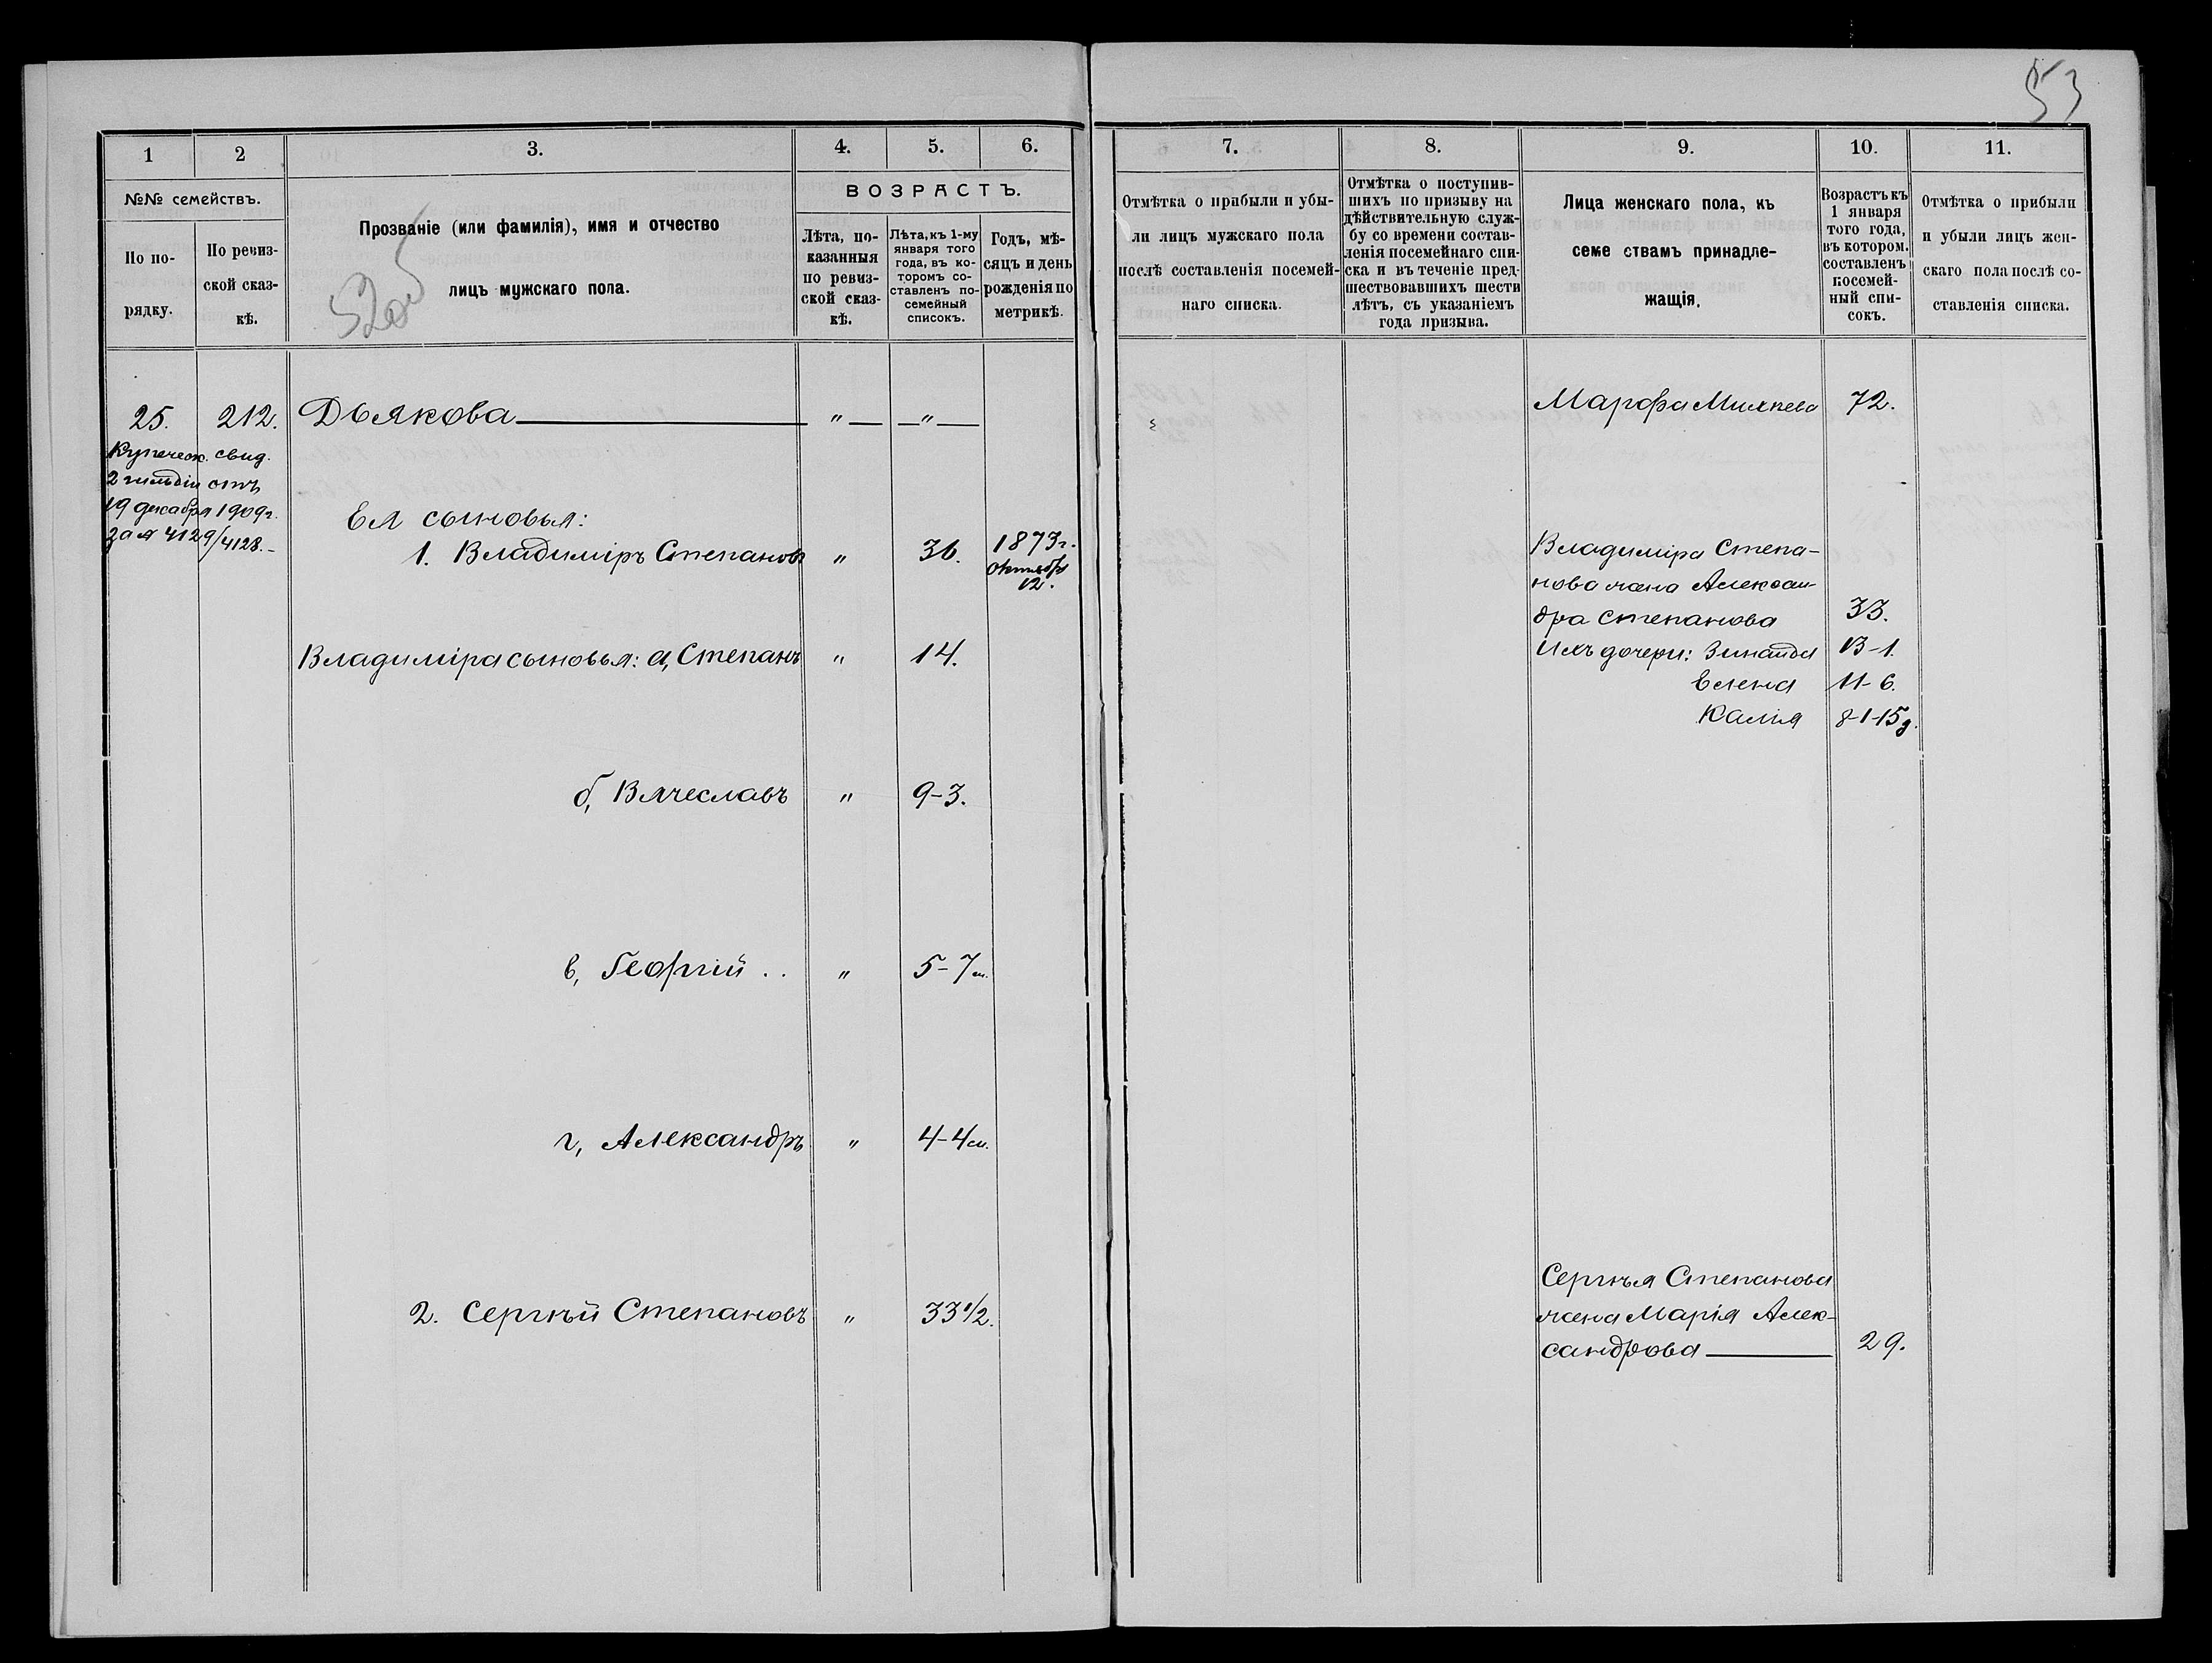 53
1
2
3.
4.
5.
6.
№№ семействъ.
По по-
рядку.
По ревиз-
ской сказ-
кѣ.
Прозваніе (или фамилія), имя и отчество
лицъ мужскаго пола.
ВОЗРАСТЪ.
Лѣта, по-
казанныя
по ревиз-
ской сказ-
кѣ.
Лѣта, къ 1-му
января того
года, въ ко-
торомъ со-
ставленъ по-
семейный
списокъ.
Годъ, мѣ-
сяцъ и день
рожденія по
метрикѣ.
25. 212. Дьякова " "
Купеческ. свид.
2 гильдіи отъ
19 декабря 1909 г.
за № 4129/4128.-
Ея сыновья:
1. Владиміръ Степановъ " 36. 1873 г.
октября
12.
Владиміра сыновья: а, Степанъ " 14.
б, Вячеславъ " 9-3.
в, Георгій .. " 5-7 м.
г, Александръ " 4-4 м.
2. Сергѣй Степановъ " 33 1/2.
7.
8.
9.
10.
11.
Отмѣтка о прибыли и убы-
ли лицъ мужскаго пола
послѣ составленія посемей-
наго списка.
Отмѣтка о поступив-
шихъ по призыву на
дѣйствительную служ-
бу со времени состав-
ленія посемейнаго спи-
ска и въ теченіе пред-
шествовавшихъ шести
лѣтъ, съ указаніемъ
года призыва.
Лица женскаго пола, къ
семе ствамъ принадле-
жащія.
Возрастъ къ
1 января
того года,
въ котором.
составленъ
посемей-
ный спи-
сокъ.
Отмѣтка о прибыли
и убыли лицъ жен-
скаго пола послѣ со-
ставленія списка.
Марфа Михѣева 72.
Владиміра Степа-
нова жена Алексан-
дра Степанова 33.
Ихъ дочери: Зинаида 13-1.
Елена 11-6.
Калія 8-1-15 д.
Сергѣя Степанова
жена Марія Алек-
сандрова 29.